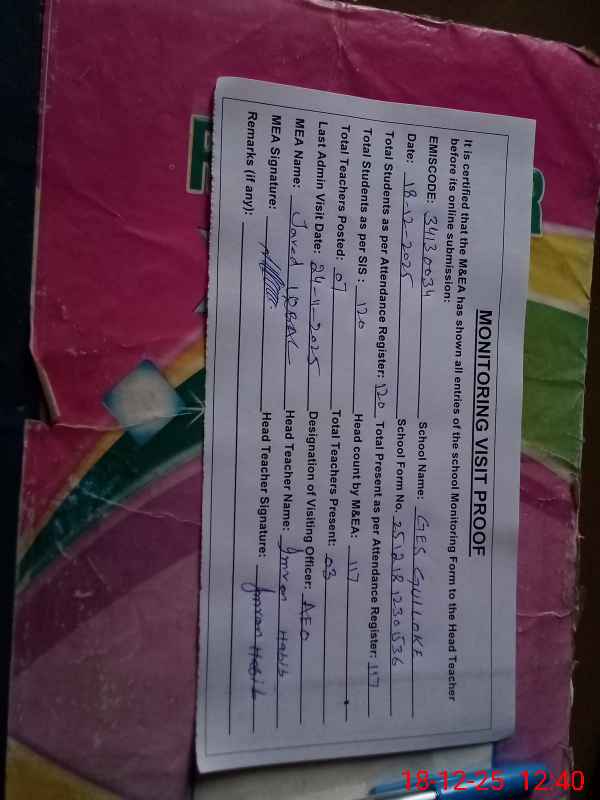 MONITORING VISIT PROOF
It is certified that the M&EA has shown all entries of the school Monitoring Form to the Head Teacher
before its online submission:
EMISCODE: 34130034 School Name: GES
Date: 18-12-2025 School Form No. 25121812301536
Total Students as per Attendance Register: 120 Total Present as per Attendance Register: 117
Total Students as per SIS : 120 Head count by M&EA: 117
Total Teachers Posted: 07 Total Teachers Present: 03
Last Admin Visit Date: 24-11-2025 Designation of Visiting Officer: AEO
MEA Name: Javed IQBAL Head Teacher Name: Imran Habib
MEA Signature: Head Teacher Signature: Imran Habib
Remarks (if any):
18-12-25 12:40